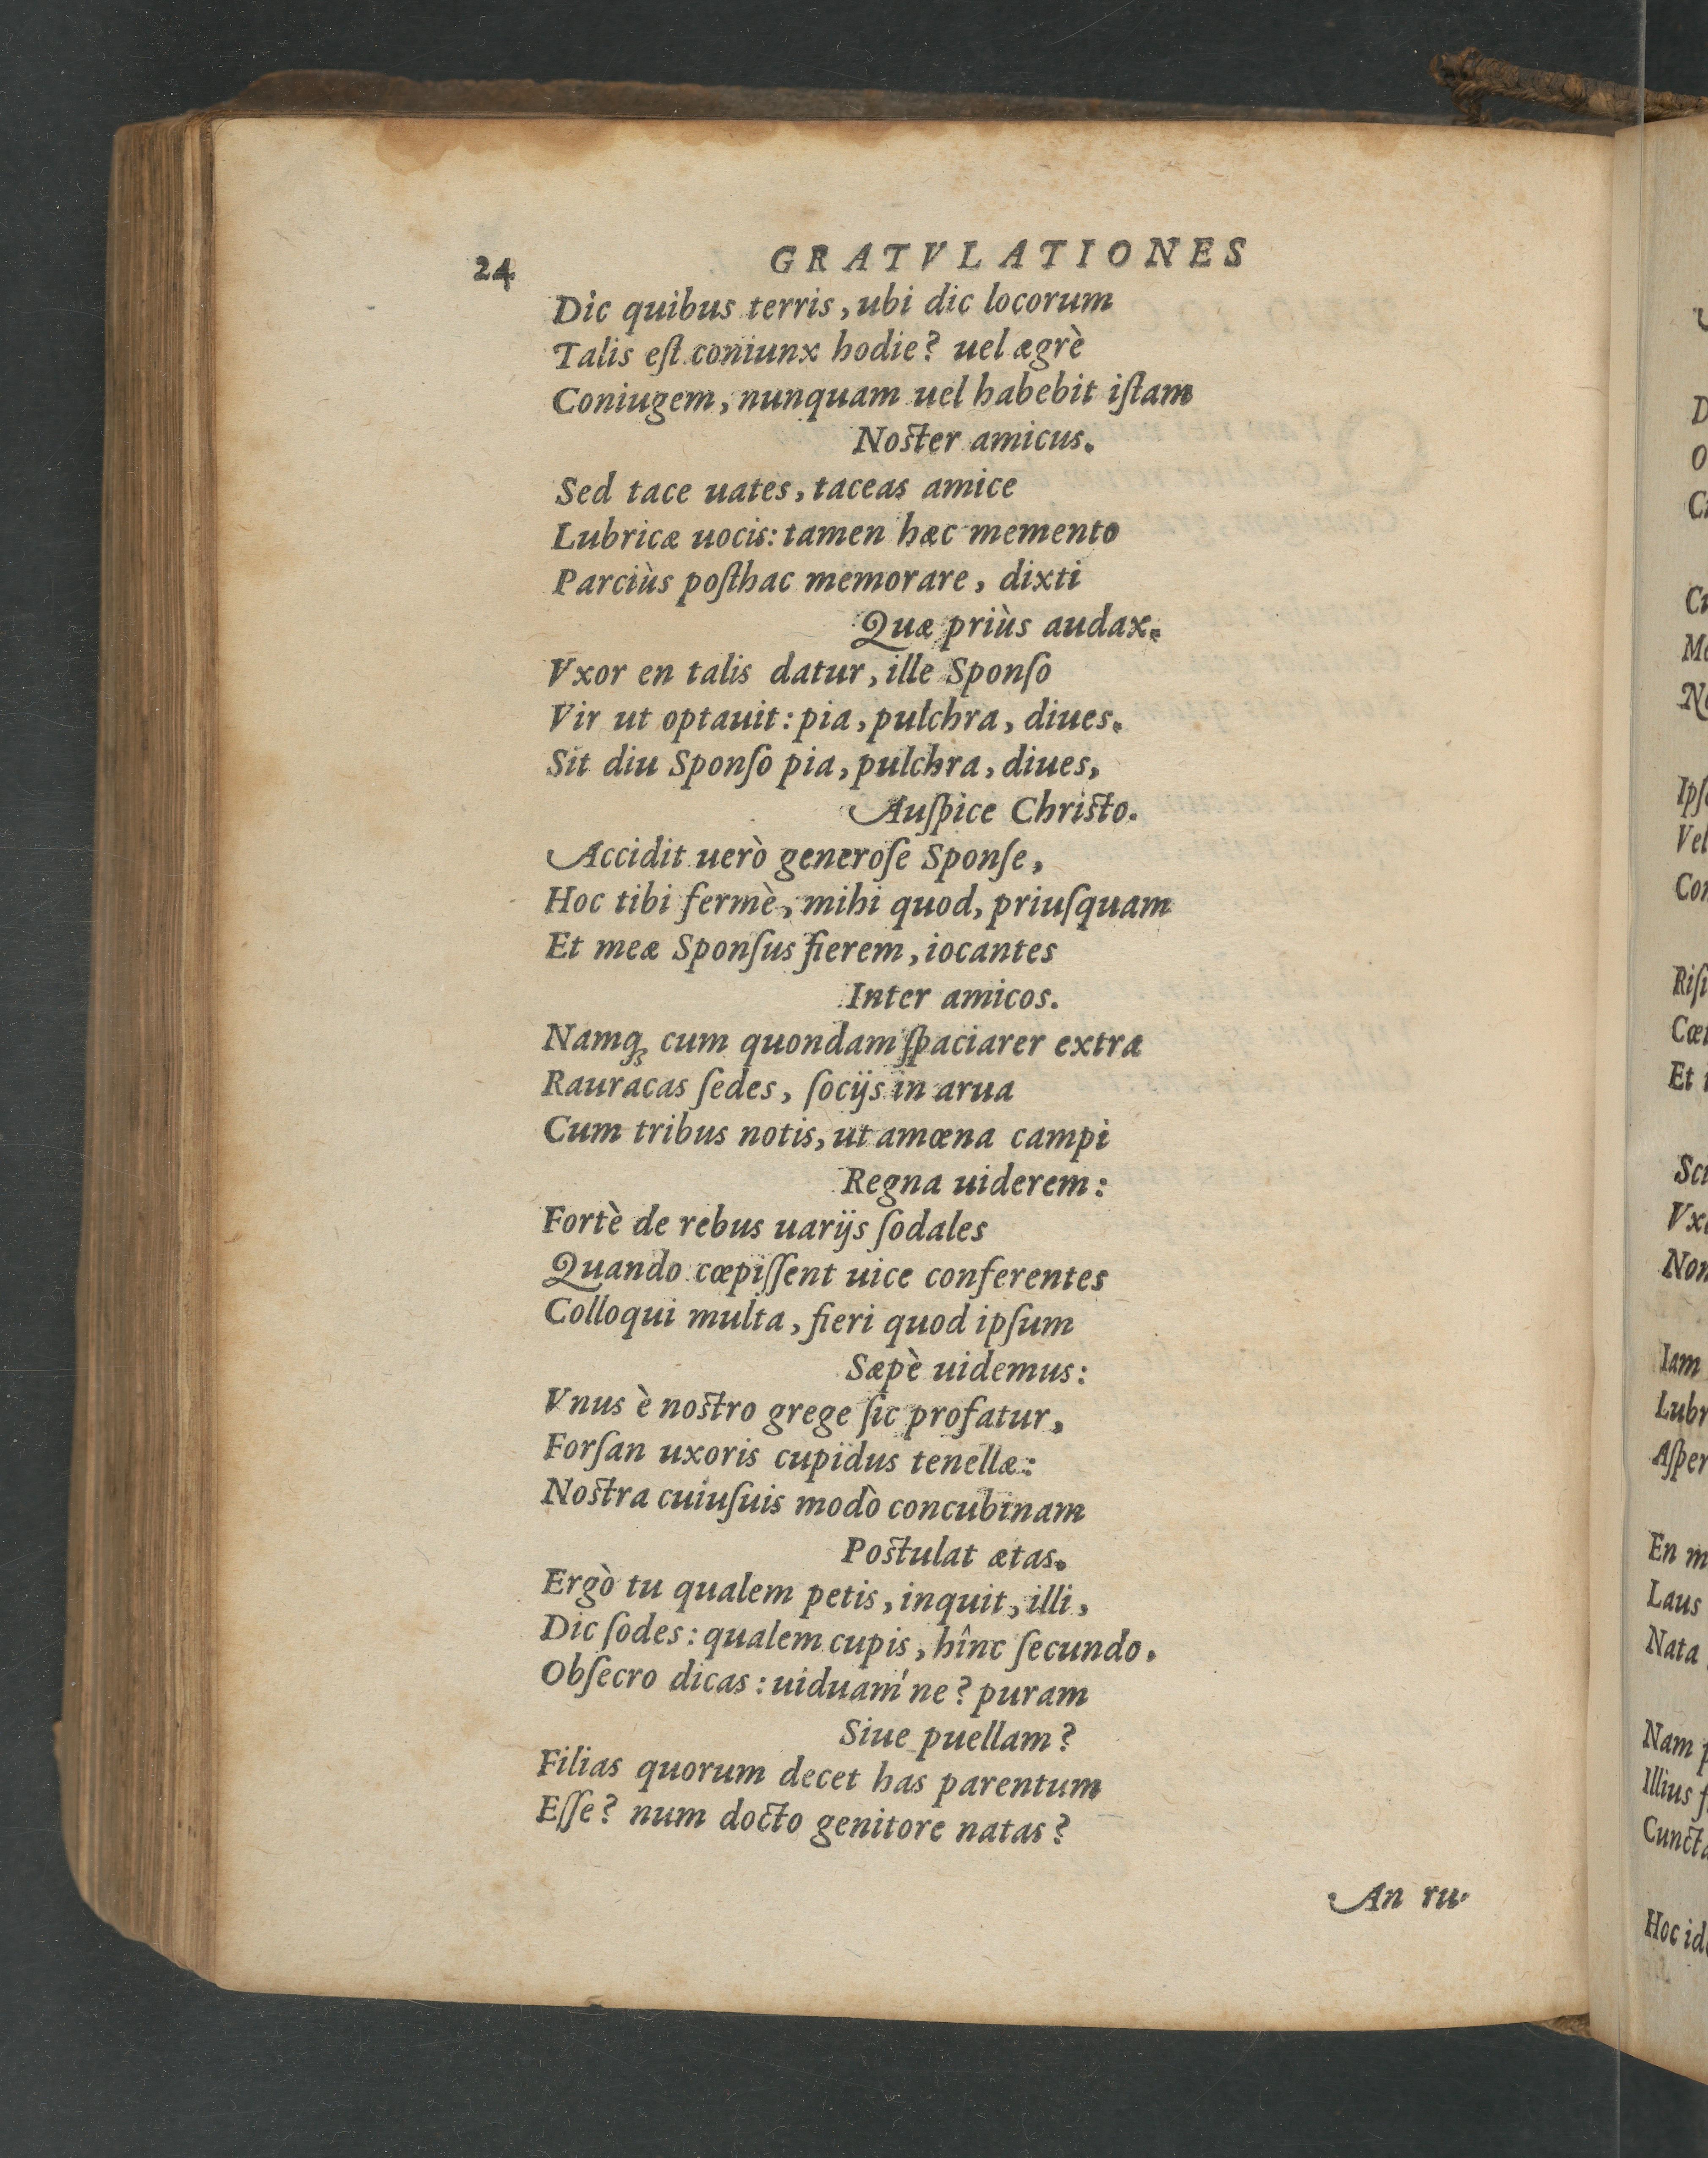 24 GRATVLATIONES
Dic quibus terris, ubi dic locorum
Talis eſt coniunx hodie? uel ægrè
Coniugem, nunquam uel habebit iſtam
Noster amicus.
Sed tace uates, taceas amice
Lubricæ uocis: tamen hæc memento
Parciùs poſthac memorare, dixti
Quæ priùs audax.
Vxor en talis datur, ille Sponſo
Vir ut optauit: pia, pulchra, diues.
Sit diu Sponſo pia, pulchra, diues,
Auſpice Christo.
Accidit uerò generoſe Sponſe,
Hoc tibi fermè, mihi quod, priuſquam
Et meæ Sponſus fierem, iocantes
Inter amicos.
Namq; cum quondam ſpaciarer extra
Rauracas ſedes, ſocijs in arua
Cum tribus notis, ut amœna campi
Regna uiderem:
Fortè de rebus uarijs ſodales
Quando cœpiſſent uice conferentes
Colloqui multa, fieri quod ipſum
Sæpè uidemus:
Vnus è nostro grege ſic profatur,
Forſan uxoris cupidus tenellæ:
Nostra cuiuſuis modò concubinam
Postulat ætas.
Ergò tu qualem petis, inquit, illi,
Dic ſodes: qualem cupis, hînc ſecundo.
Obſecro dicas: uiduam'ne? puram
Siue puellam?
Filias quorum decet has parentum
Eſſe? num docto genitore natas?
An ru-
D
O
Cu
Me
Ipſ
Vel
Con
Riſi
Et
Vx
Non
Iam
Lubr
Aſper
En m
Laus
Nata
Nam p
Illius ſ
Cuncta
Hoc id